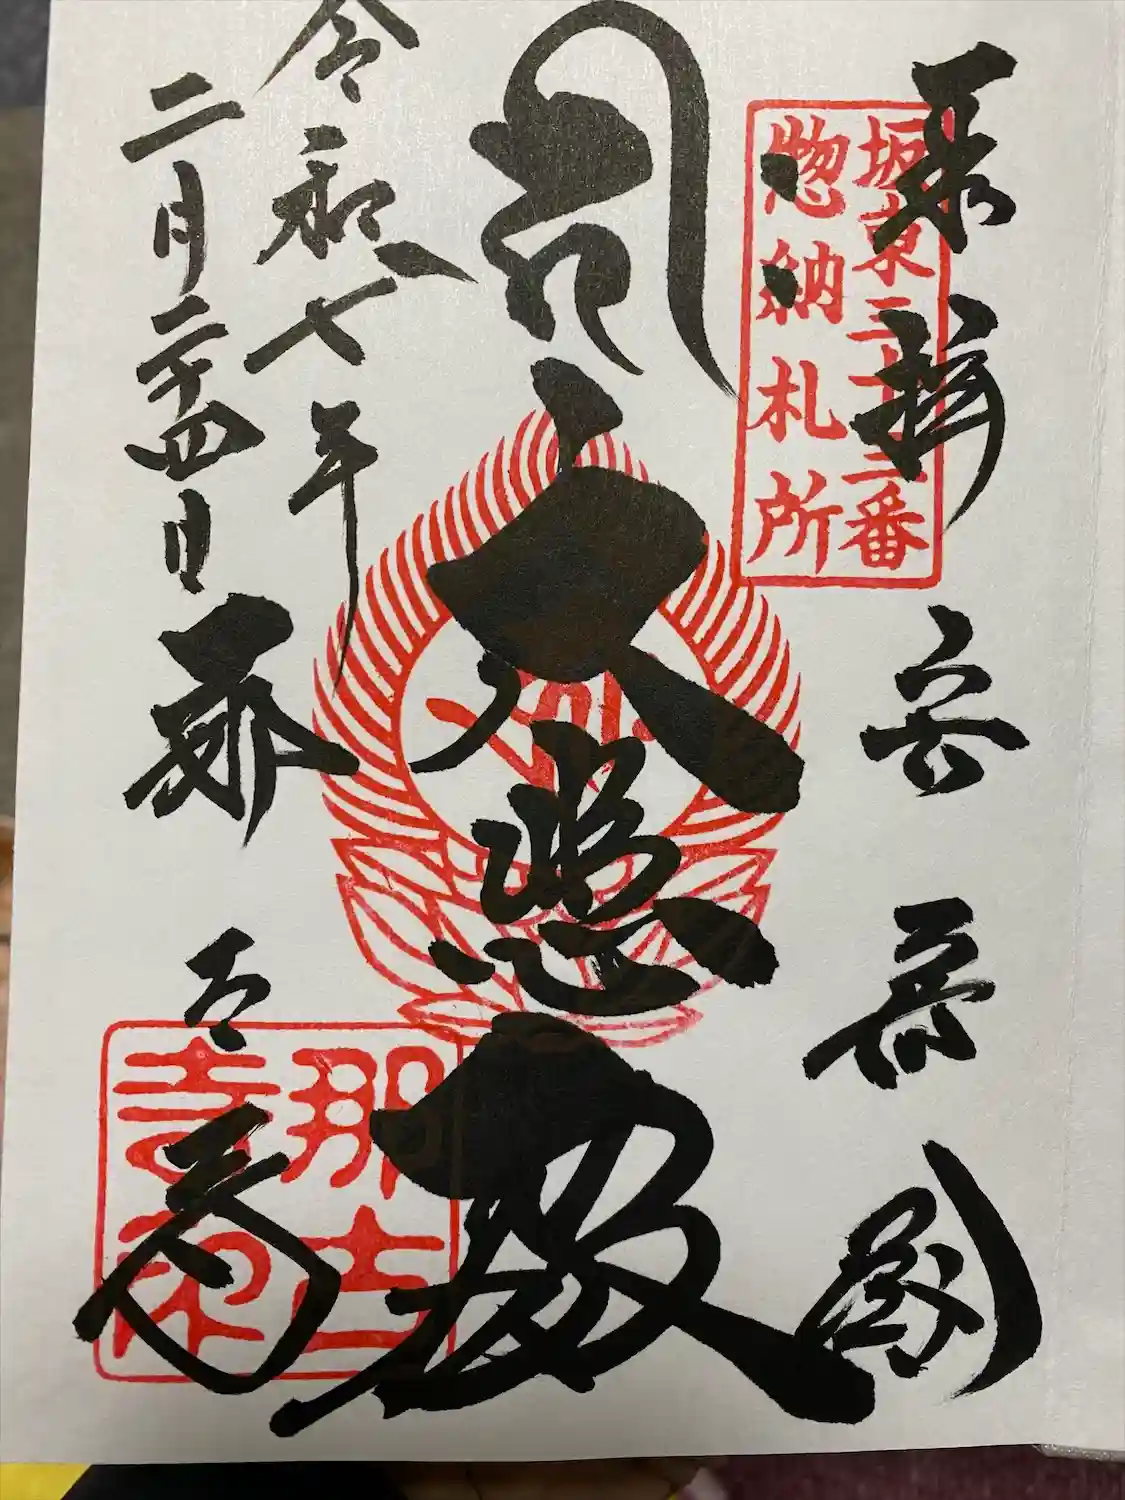 来拝 安房國
坂東三十三番
惣納札所
大悲殿
令和七年
二月二十四日
那古寺
那古
寺印